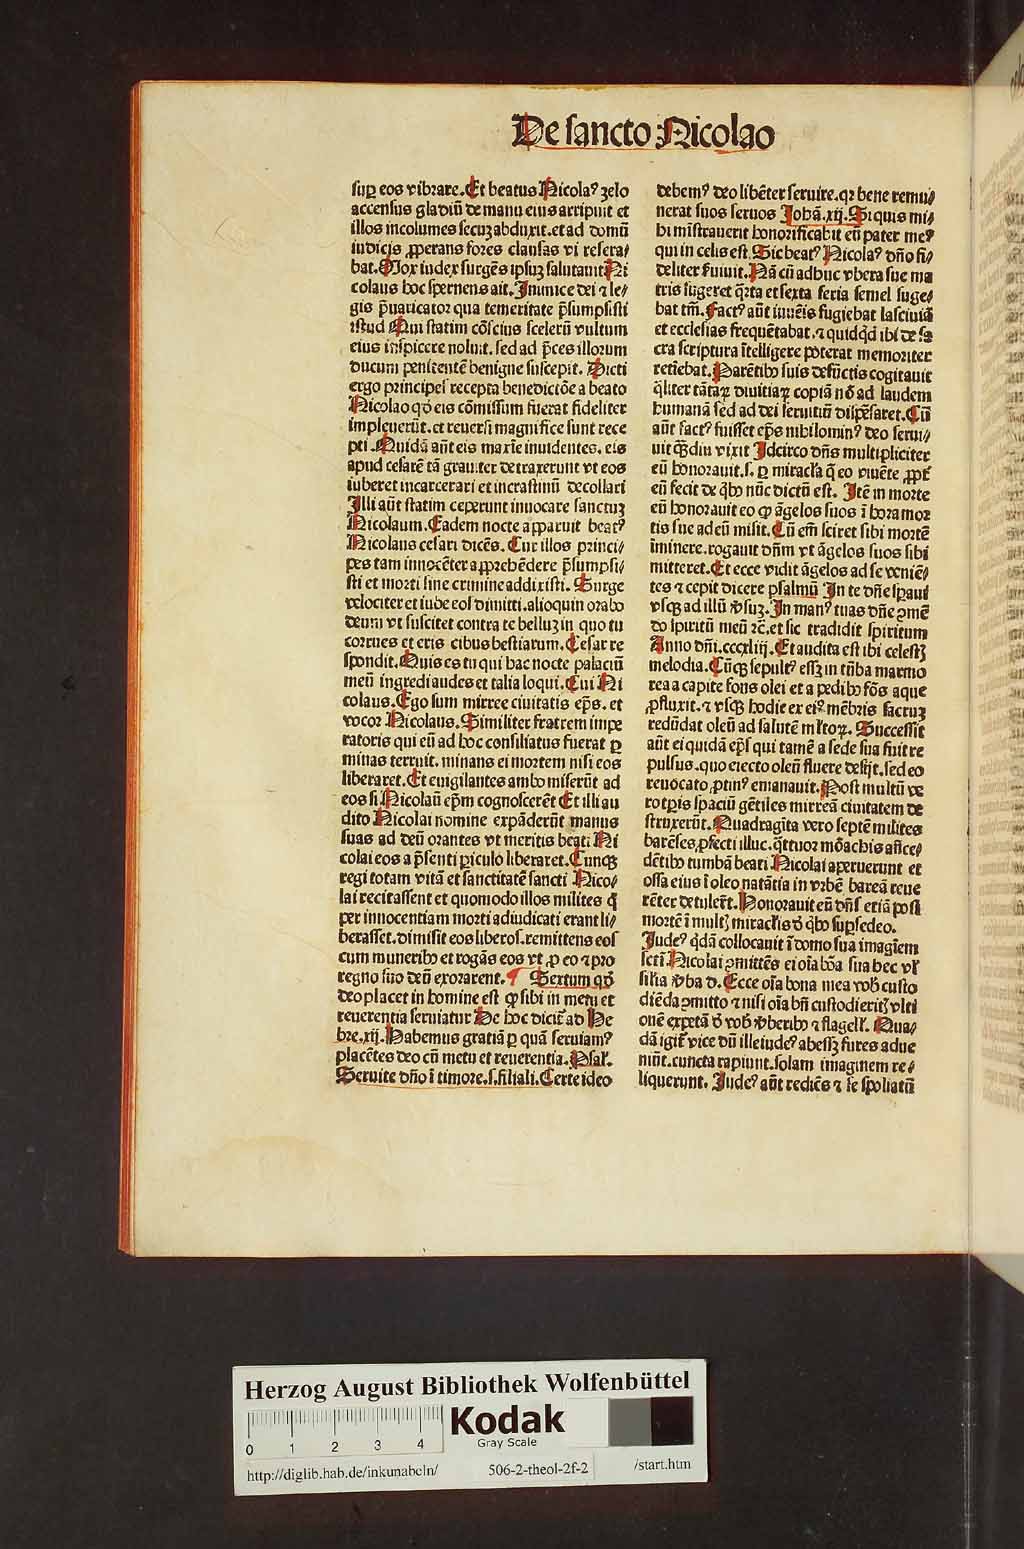 De sancto Nicolao
suꝑ eos vibrare. Et beatus Nicolaꝰ zelo
accensus gladiū de manu eius arripuit et
illos incolumes secuꝫ abduxit. et ad domū
iudicis ꝓperans fores clausas vi resera/
bat. Mox iudex surgēs ipsuꝫ salutauit Ni
colaus hoc spernens ait. Inimice dei ⁊ le/
gis p̄uaricator qua temeritate p̄sumpsisti
istud Qui statim cōscius scelerū vultum
eius inspicere noluit. sed ad p̄ces illorum
ducum penitentē benigne suscepit. Dicti
ergo principes recepta benedictiōe a beato
Nicolao qḋ eis cōmissum fuerat fideliter
impleuerūt. et reuersi magnifice sunt rece
pti. Quidā aūt eis maxīe inuidentes. eis
apud cesarē tā grauiter detraxerunt vt eos
iuberet incarcerari et incrastinū decollari
Illi aūt statim ceperunt inuocare sanctuꝫ
Nicolaum. Eadem nocte apparuit beatꝰ
Nicolaus cesari dicēs. Cur illos princi/
pes tam innocēter apprehēdere p̄sumpsi/
sti et morti sine crimine addixisti. Surge
velociter et iube eos dimitti. alioquin orabo
deum vt suscitet contra te belluꝫ in quo tu
corrues et eris cibus bestiarum. Cesar re
spondit. Quis es tu qui hac nocte palaciū
meū ingredi audes et talia loqui. Cui Ni
colaus. Ego sum mirree ciuitatis ep̄s. et
vocor Nicolaus. Similiter fratrem impe
ratoris qui eū ad hoc consiliatus fuerat ꝑ
minas terruit. minans ei mortem nisi eos
liberaret. Et euigilantes ambo miserūt ad
eos si Nicolaū ep̄m cognoscerēt Et illi au
dito Nicolai nomine expāderūt manus
suas ad deū orantes vt meritis beati Ni
colai eos a p̄senti ꝑiculo liberaret. Cunqꝫ
regi totam vitā et sanctitatē sancti Nico/
lai recitassent et quomodo illos milites q̄
per innocentiam morti adiudicati erant li/
berasset. dimisit eos liberos. remittens eos
cum muneribꝰ et rogās eos vt ꝓ eo ⁊ pro
regno suo deū exorarent. ¶ Sextum qḋ
deo placet in homine est ꝙ sibi in metu et
reuerentia seruiatur De hoc dicit̄ ad He
bre. xij. Habemus gratiā ꝑ quā seruiamꝰ
placētes deo cū metu et reuerentia. Psal̄.
Seruite dn̄o ī timore. s. filiali. Certe ideo
debemꝰ deo libēter seruire. qꝛ bene remu/
nerat suos seruos Johā. xij. Si quis mi/
hi mīstrauerit honorificabit eū pater meꝰ
qui in celis est. Sic beatꝰ Nicolaꝰ dn̄o fi/
deliter ẜuiuit. Nā cū adhuc vbera sue ma
tris sugeret q̄rta et sexta feria semel suge/
bat tm̄. Factꝰ aūt iuuēis fugiebat lasciuiā
et ecclesias frequētabat. ⁊ quidqḋ ibi de sa
cra scriptura ītelligere poterat memoriter
retīebat. Parētibꝰ suis defūctis cogitauit
q̄liter tātaꝝ diuitiaꝝ copiā nō ad laudem
humanā sed ad dei seruitiū dispēsaret. Cū
aūt factꝰ fuisset ep̄s nihilominꝰ deo serui/
uit qͣꝫdiu vixit Idcirco dn̄s multipliciter
eū honorauit. s. ꝑ miracl̄a q̄ eo viuēte ꝓpt̄
eū fecit de qͥbꝰ nūc dictū est. Itē in morte
eū honorauit eo ꝙ āgelos suos ī hora mor
tis sue ad eū misit. Cū em̄ sciret sibi mortē
īminere. rogauit dn̄m vt āgelos suos sibi
mitteret. Et ecce vidit āgelos ad se veniē/
tes ⁊ cepit dicere psalmū In te dn̄e sꝑaui
vsqꝫ ad illū ꝟsuꝫ. In manꝰ tuas dn̄e ꝯmē
do spiritū meū ⁊c̄. et sic tradidit spiritum
Anno dn̄i. cccxliij. Et audita est ibi celestꝭ
melodia. Cūqꝫ sepultꝰ essꝫ in tūba marmo
rea a capite fons olei et a pedibꝰ fōs aque
ꝓfluxit. ⁊ vsqꝫ hodie ex eiꝰ mēbris sacruꝫ
redūdat oleū ad salutē mltoꝝ. Successit
aūt ei quidā ep̄s qui tamē a sede sua fuit re
pulsus. quo eiecto oleū fluere desijt. sed eo
reuocato ꝓtinꝰ emanauit. Post multū ve
ro tꝑis spaciū gētiles mirreā ciuitatem de
struxerūt. Quadragīta vero septē milites
barēses ꝓfecti illuc. q̄ttuor mōachis asice/
dētibꝰ tumbā beati Nicolai aperuerunt et
ossa eius ī oleo natātia in vrbē bareā reue
rēter detulerūt. Honorauit eū dn̄s etiā post
mortē ī multꝭ miracl̄is ḋ qͥbꝰ suꝑsedeo.
Judeꝰ qͥdā collocauit ī domo sua imagīem
sctī Nicolai ꝯmittēs ei oīa bōa sua hec vl̄
silia ꝟba ḋ. Ecce oīa bona mea vob̄ custo
diēda ꝯmitto ⁊ nisi oīa bn̄ custodieritꝭ vlti
onē expetā ḋ vob̄ ꝟberibꝰ ⁊ flagell̄. Qua/
dā igit̄ vice dū ille iudeꝰ abessꝫ fures adue
niūt. cuncta rapiunt. solam imaginem re/
liquerunt. Judeꝰ aūt rediēs ⁊ se spoliatū
Herzog August Bibliothek Wolfenbüttel
0 1 2 3 4
Kodak
Gray Scale
http://diglib.hab.de/inkunabeln/ 506-2-theol-2f-2 /start.htm